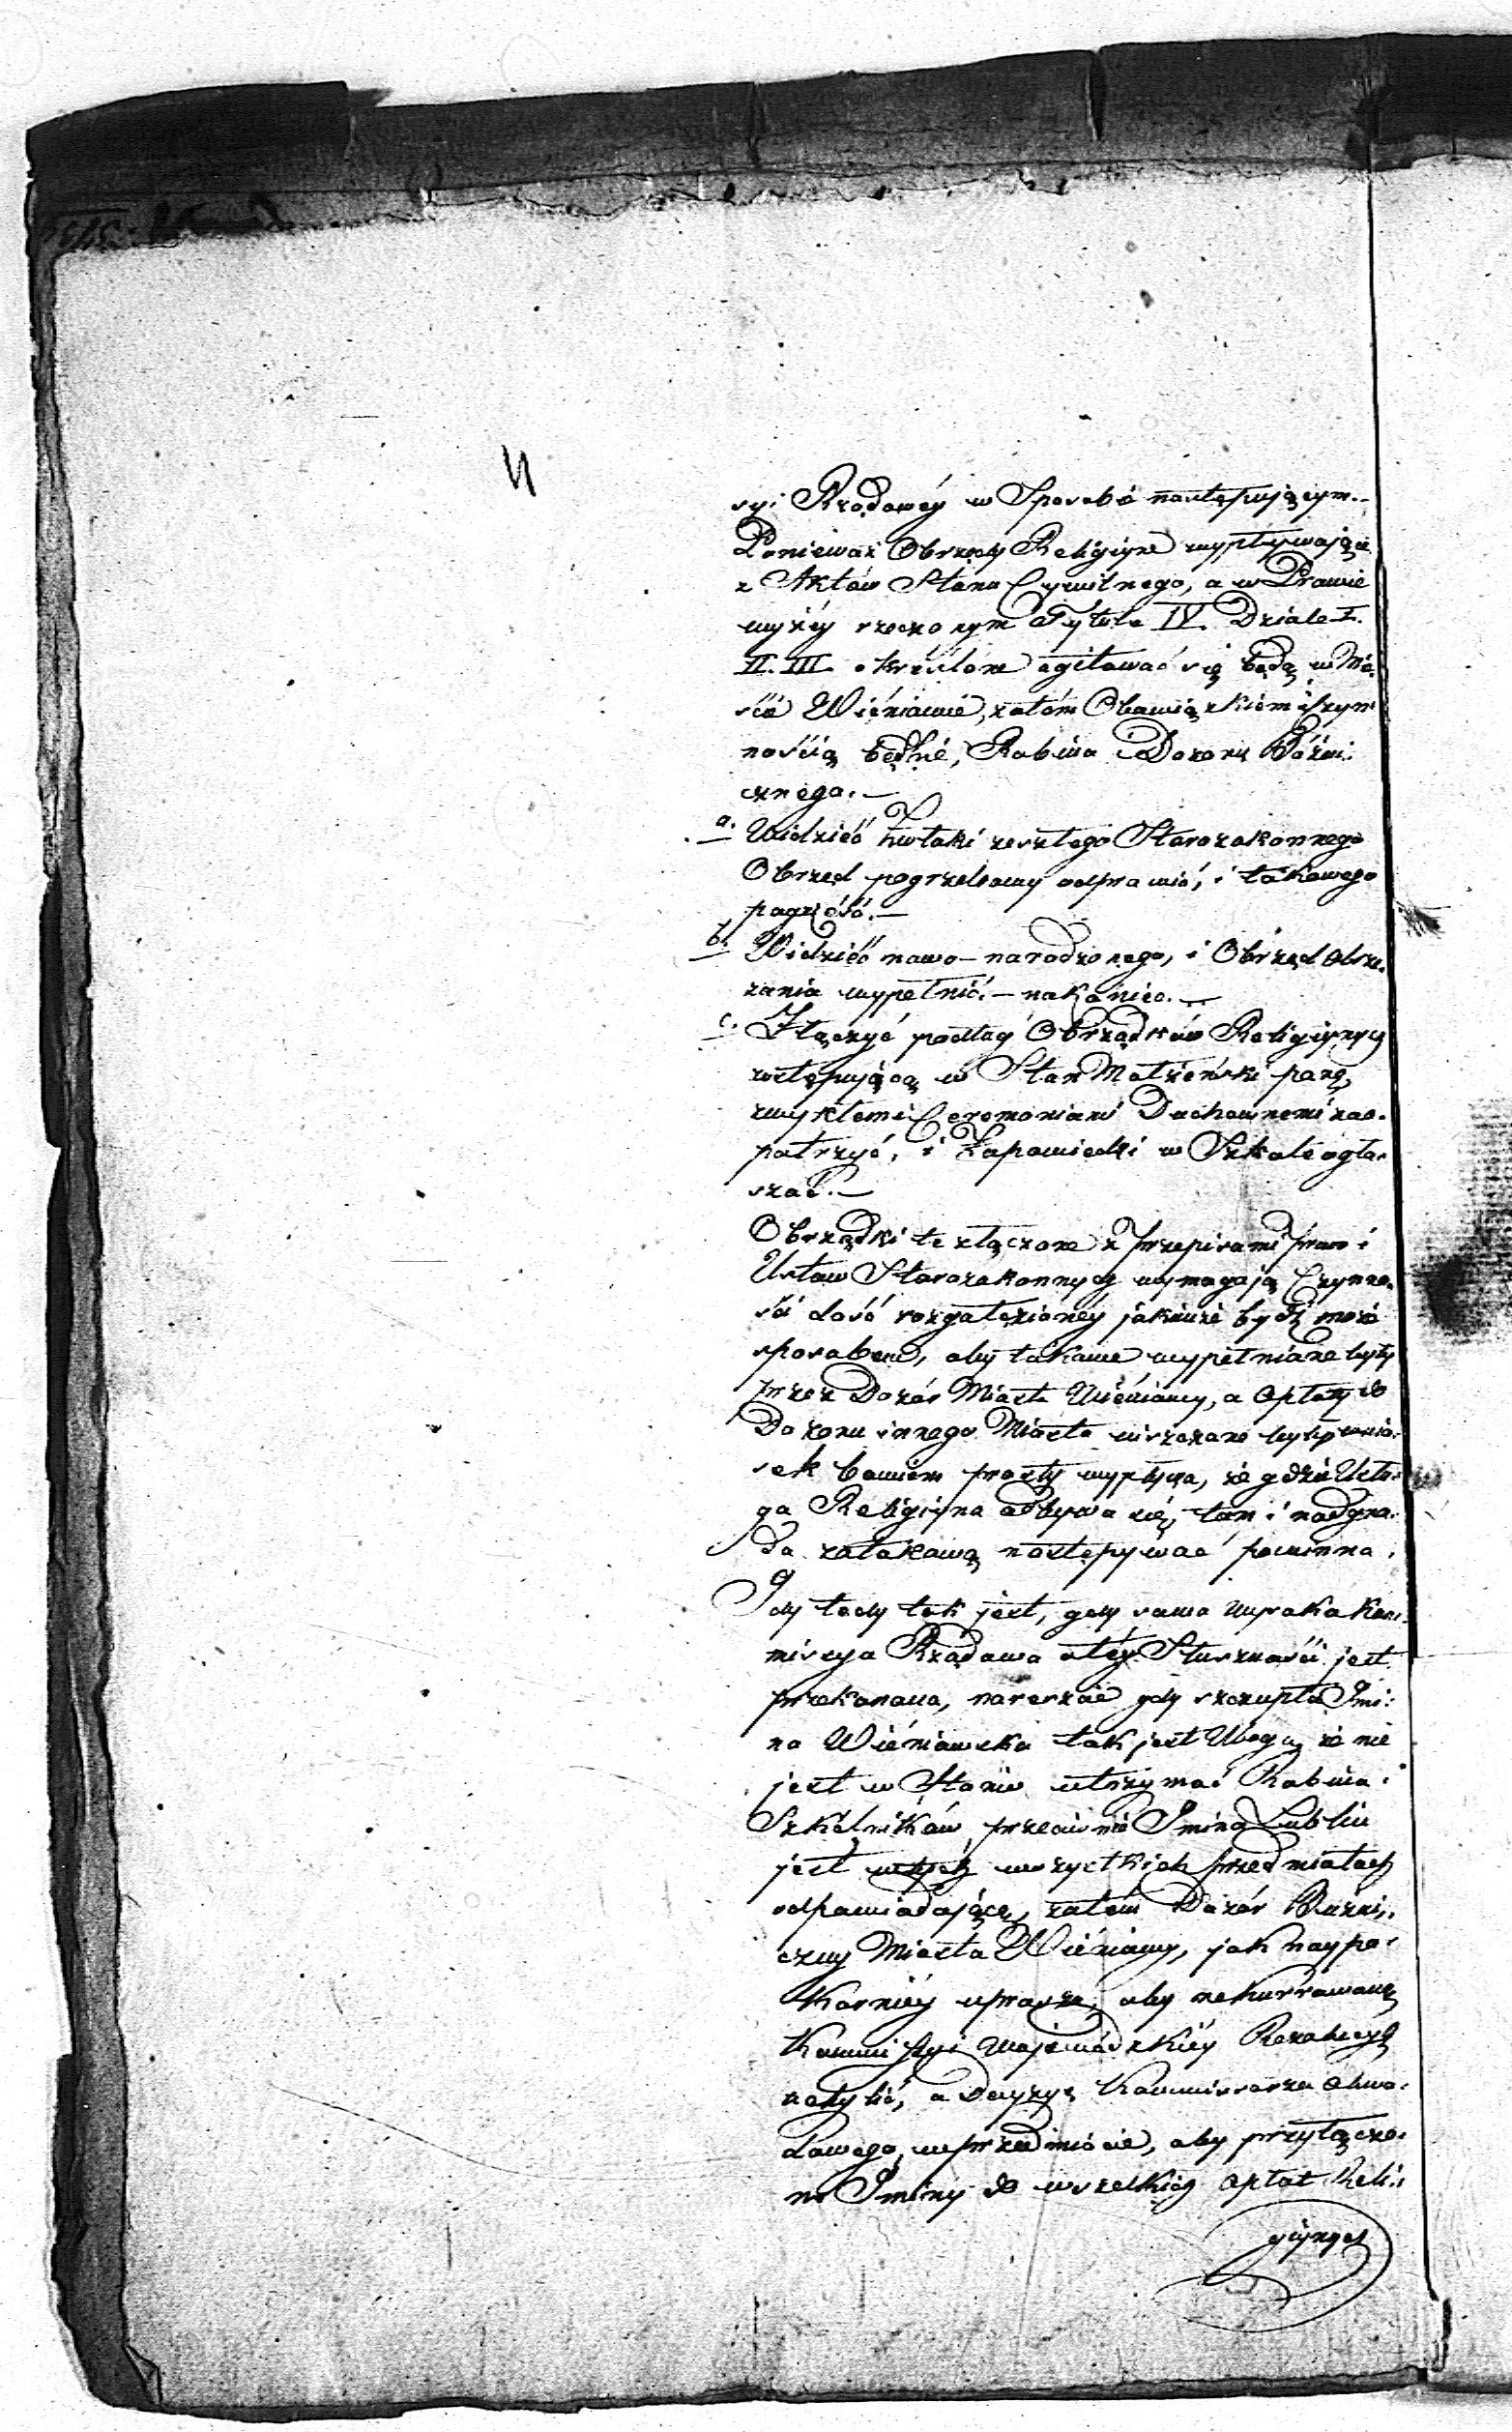 syi Rządowéy w Sposobie następującym.-
Ponieważ Obrzędy Religiyne wypływające
z Aktów Stanu Cywilnego, a w Prawie
wyżéy rzeczonym Tytule IV. Dziale I.
II. III. okréslone agitować się będą w Mie-
ście Wieniawie, zatém Obowiązkiem i Czyn-
nością będzie, Rabina i Dozoru Bóżni-
cznego.-
a. Widzieć Zwłoki zeszłego Starozakonnego
Obrzęd pogrzebowy odprawić, i takowego
pogrześć.-
b. Widzieć nowo-narodzonego, i Obrzęd Obrze-
zania wypełnić.- nakoniec.-
c. Złączyć podług Obrządków Religiynych
wstępującą w Stan Małżeński parę,
zwykłemi Ceremoniami Duchownemi zao-
patrzyć, i Zapowiedzi w Szkole ogła-
szać.-
Obrządki te złączone z przepisami praw i
Ustaw Starozakonnych wymagają Czynno-
ści dość rozgałęzionéy jakimże bydź może
sposobem, aby takowe wypełniane były
przez Dozór Miasta Wieniawy, a Opłaty do
Dozoru innego Miasta uiszczane były, wnio-
sek bowiem prosty wypływa, że gdzie Usłu-
ga Religiyna odbywa się, tam i nadgro-
da za takową następywać powinna.
Gdy tedy tak jest, gdy sama Wysoka Kom-
missya Rządowa o téy Słuszności jest
przekonana, nareszcie gdy szczupła Gmi-
na Wieniawska tak jest Uboga, że nie
jest w Stanie utrzymać Rabina i
Szkólników, przeciwnie Gmina Lublin
jest wszystkich przedmiotach
odpowiadającą, zatém Dozór Bóżni-
czny Miasta Wieniawy, jak naypo-
korniéy uprasza, aby rekurrowaną
Kommissyi Woiewódzkiéy Rezolucyą
uchylić, a Decyzyę Kommissarza Obwo-
dowego, w przedmiocie, aby przyłącze-
nie Gminy do wszelkich opłat Reli-
giynych